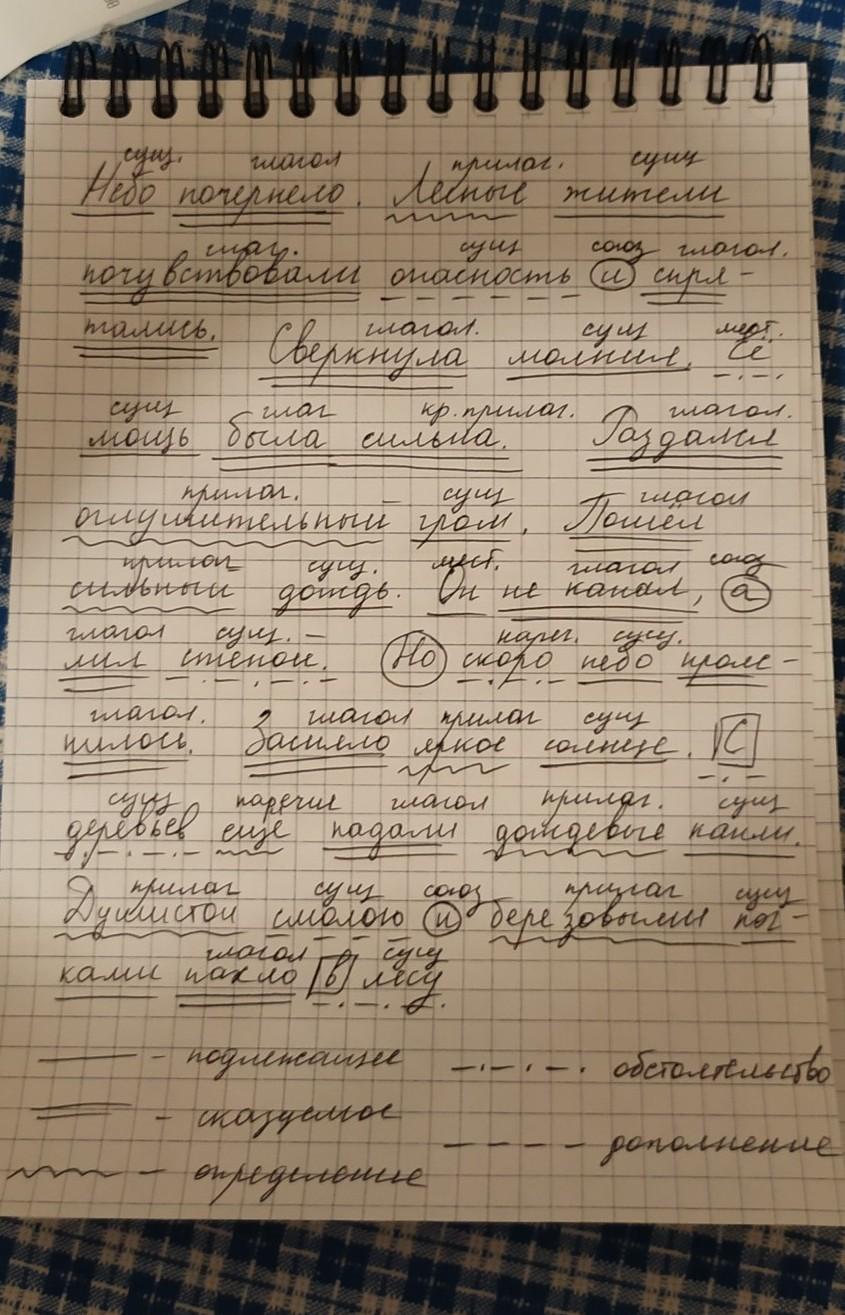 сущ. глагол прилаг. сущ
Небо почернело. Лесные жители
глаг. сущ союз глагол.
почувствовали опасность и спря-
глагол. сущ мест.
тались. Сверкнула молния. Её
сущ глаг кр.прилаг. глагол.
мощь была сильна. Раздался
прилаг. сущ глагол
оглушительный гром. Пошёл
прилаг сущ. мест. глагол союз
сильный дождь. Он не капал, а
глагол сущ. нареч. сущ.
лил стеной. Но скоро небо прояс-
глагол. глагол прилаг сущ
нилось. Засияло яркое солнце. С
сущ наречие глагол прилаг. сущ
деревьев еще падали дождевые капли.
прилаг сущ союз прилаг сущ
Душистой смолою и березовыми поч-
глагол сущ
ками пахло в лесу.
- подлежащее
обстоятельство
- сказуемое
дополнение
- определение